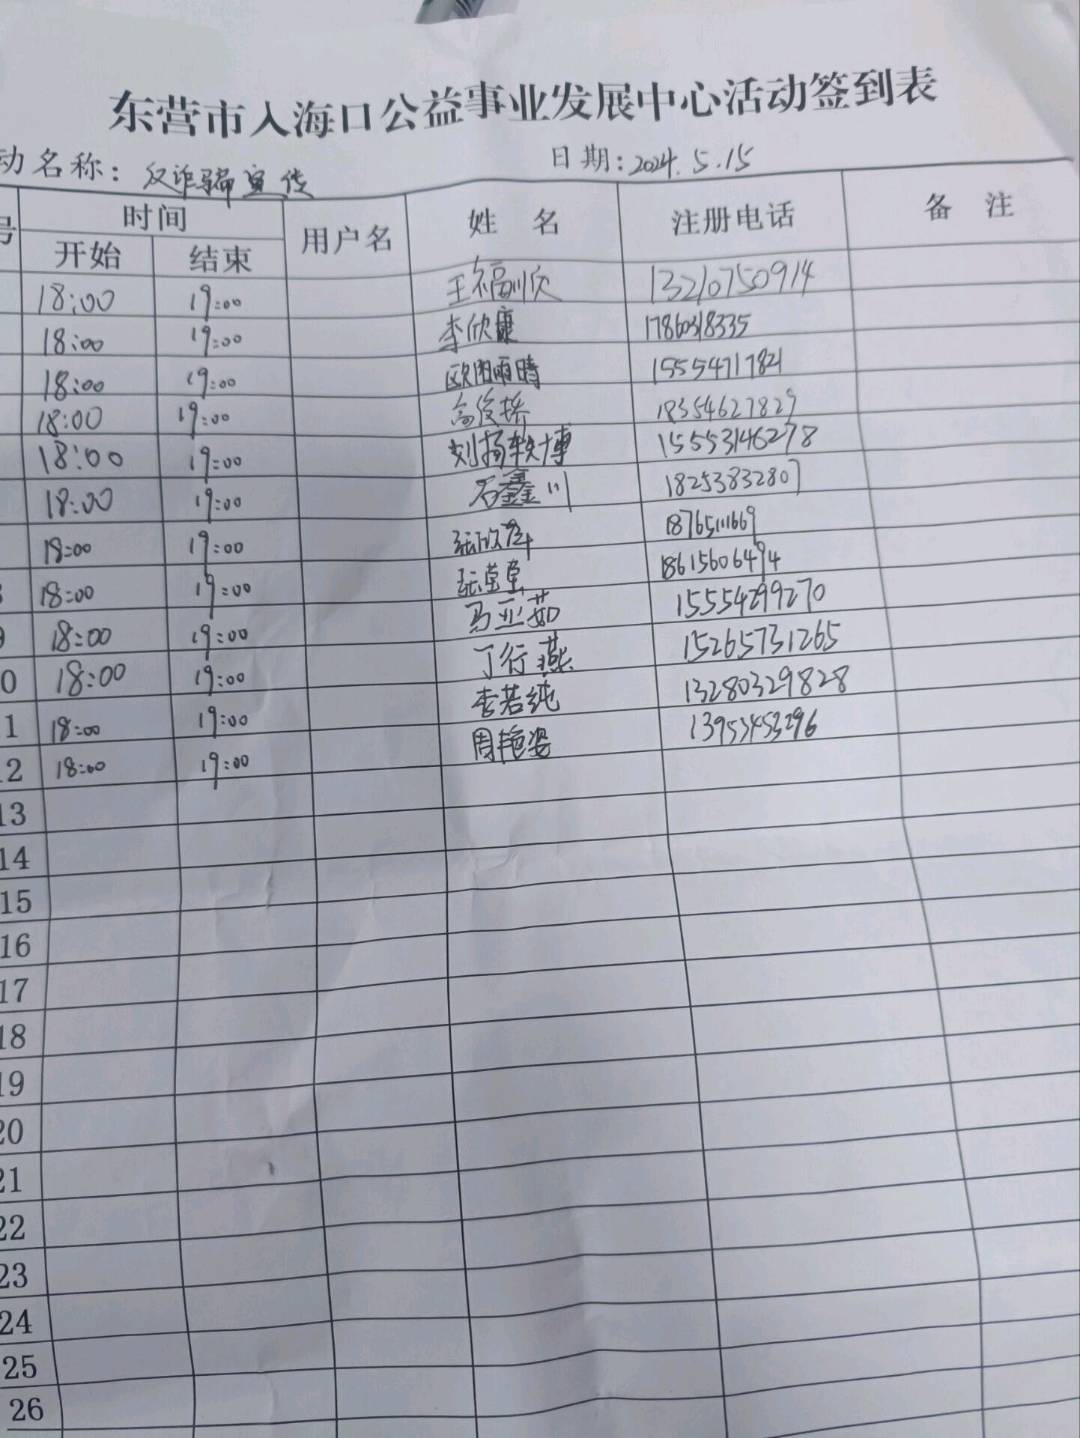 东营市入海口公益事业发展中心活动签到表
动名称：反诈骗宣传 日期：2024.5.15
号 时间 用户名 姓 名 注册电话 备 注
开始 结束
18:00 19:00 13210750914
18:00 19:00 李欣康 17860318335
18:00 19:00 欧阳雨晴 15554717821
18:00 19:00 高俊桥 18354627829
18:00 19:00 刘扬轶博 15553146278
18:00 19:00 石鑫川 18253832807
18:00 19:00 18765111669
8 18:00 19:00 18615606494
9 18:00 19:00 马亚茹 15554299270
10 18:00 19:00 丁行燕 15265731265
11 18:00 19:00 李若纯 13280329828
12 18:00 19:00 周艳姿 13953453296
13
14
15
16
17
18
19
20
21
22
23
24
25
26